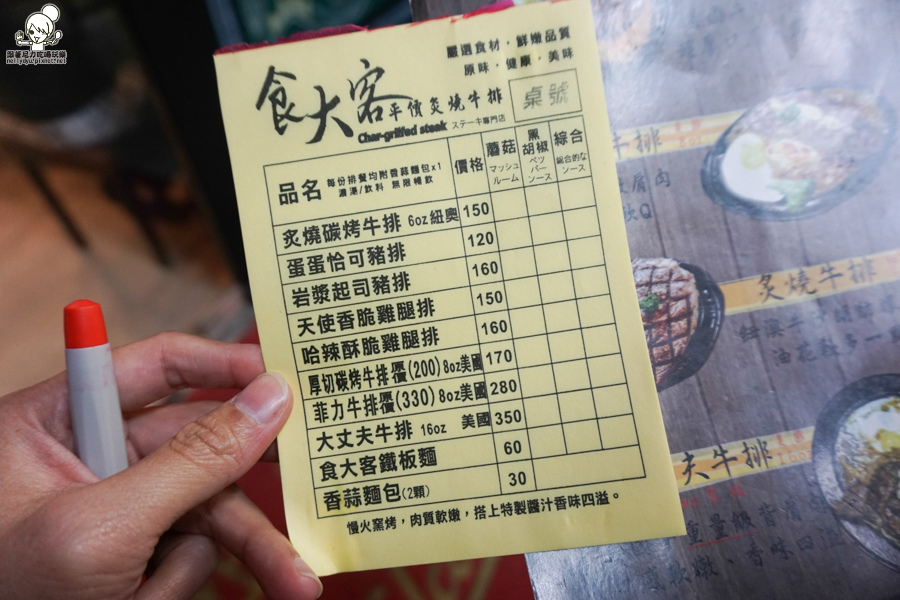 跟著尼力吃喝玩樂
嚴選食材,鮮嫩品質
原味,健康,美味
食大客 平價炙燒牛排
Char-grilled steak ステーキ專門店
桌號
品名 每份排餐均附香蒜麵包x1
濃湯/飲料 無限暢飲
價格
蘑菇
マッシュルーム
黑胡椒
ペッパーソース
綜合
総合的なソース
炙燒碳烤牛排 6oz紐奧 150
蛋蛋恰可豬排 120
岩漿起司豬排 160
天使香脆雞腿排 150
哈辣酥脆雞腿排 160
厚切碳烤牛排 原價(200) 8oz美國 170
菲力牛排 原價(330) 8oz美國 280
大丈夫牛排 16oz 美國 350
食大客鐵板麵 60
香蒜麵包(2顆) 30
慢火窯烤,肉質軟嫩,搭上特製醬汁香味四溢。
牛排
炙燒牛排
夫牛排
重量級
香味四溢